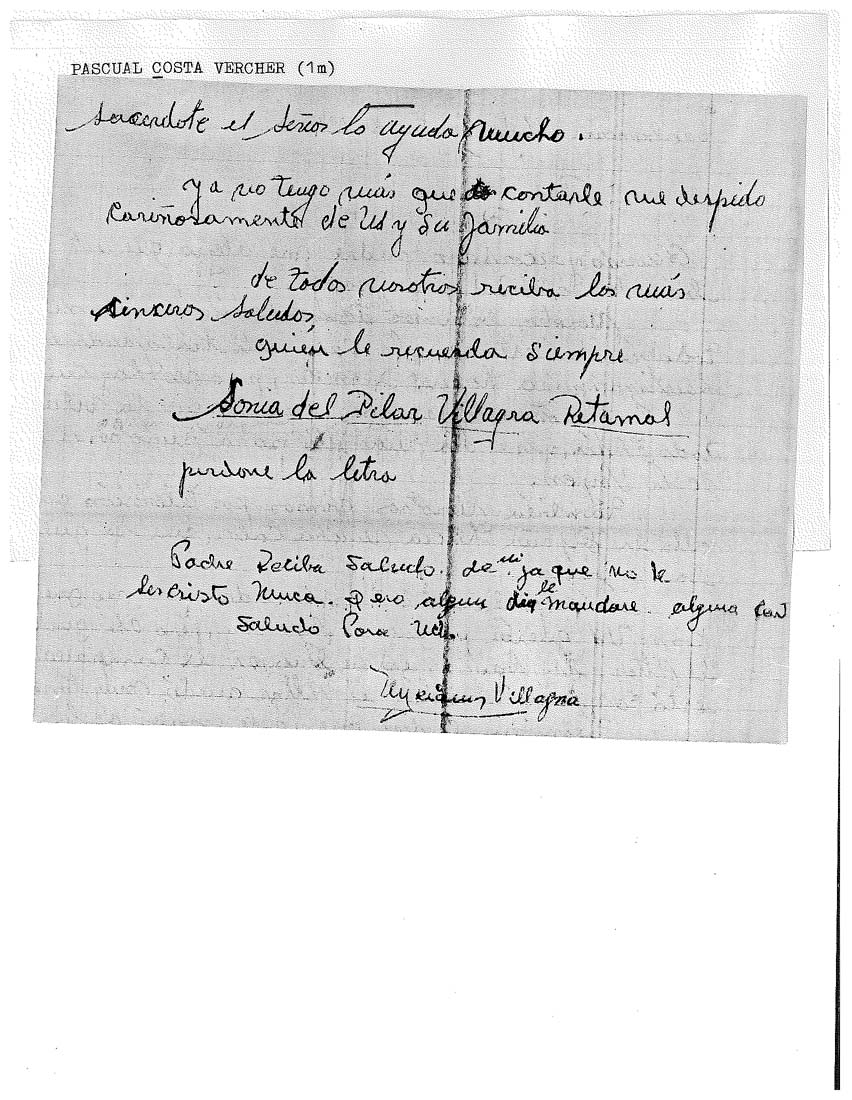 PASCUAL COSTA VERCHER (1m)
sacerdote el Señor lo ayuda mucho.
ya no tengo más que contarle me despido
Cariñosamente de Ud y Su familia
de todos nosotros reciba los más
sinceros saludos
quién le recuerda siempre
Sonia del Pilar Villagra Retamal
perdone la letra
Padre Reciba Saludo. de mi ya que no le
Nunca. Pero algun dia le mandare alguna
Saludo Para Ud.
Villagra